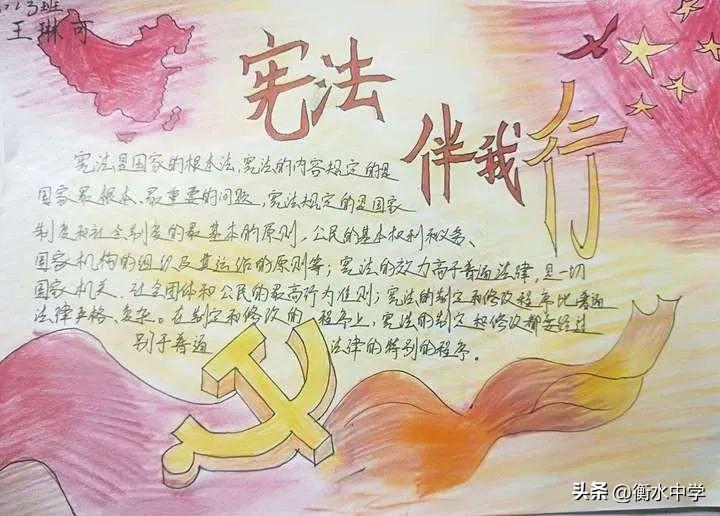 1123班
王琳可
宪法
伴我行
宪法是国家的根本法,宪法的内容规定的是
国家最根本、最重要的问题,宪法规定的是国家
制度和社会制度的最基本的原则,公民的基本权利和义务、
国家机构的组织及其运给的原则等;宪法的效力高于普通法律,是一切
国家机关、社会团体和公民的最高行为准则;宪法的制定和修改程序比普通
法律严格、复杂。在制定和修改的程序上,宪法的制定和修改都要经过
别于普通 法律的特别的程序。
头条 @衡水中学